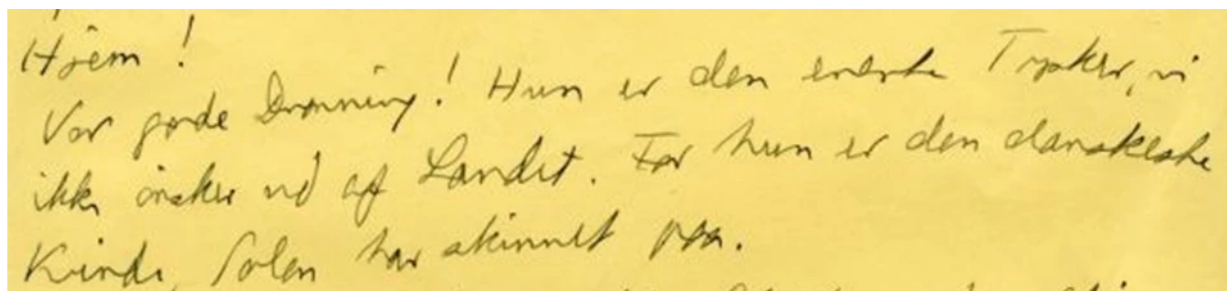 Hjem!
Vor gode Dronning! Hun er den eneste Tysker, vi
ikke önsker ud af Landet. For hun er den danskeste
Kvinde, Solen har skinnet paa.